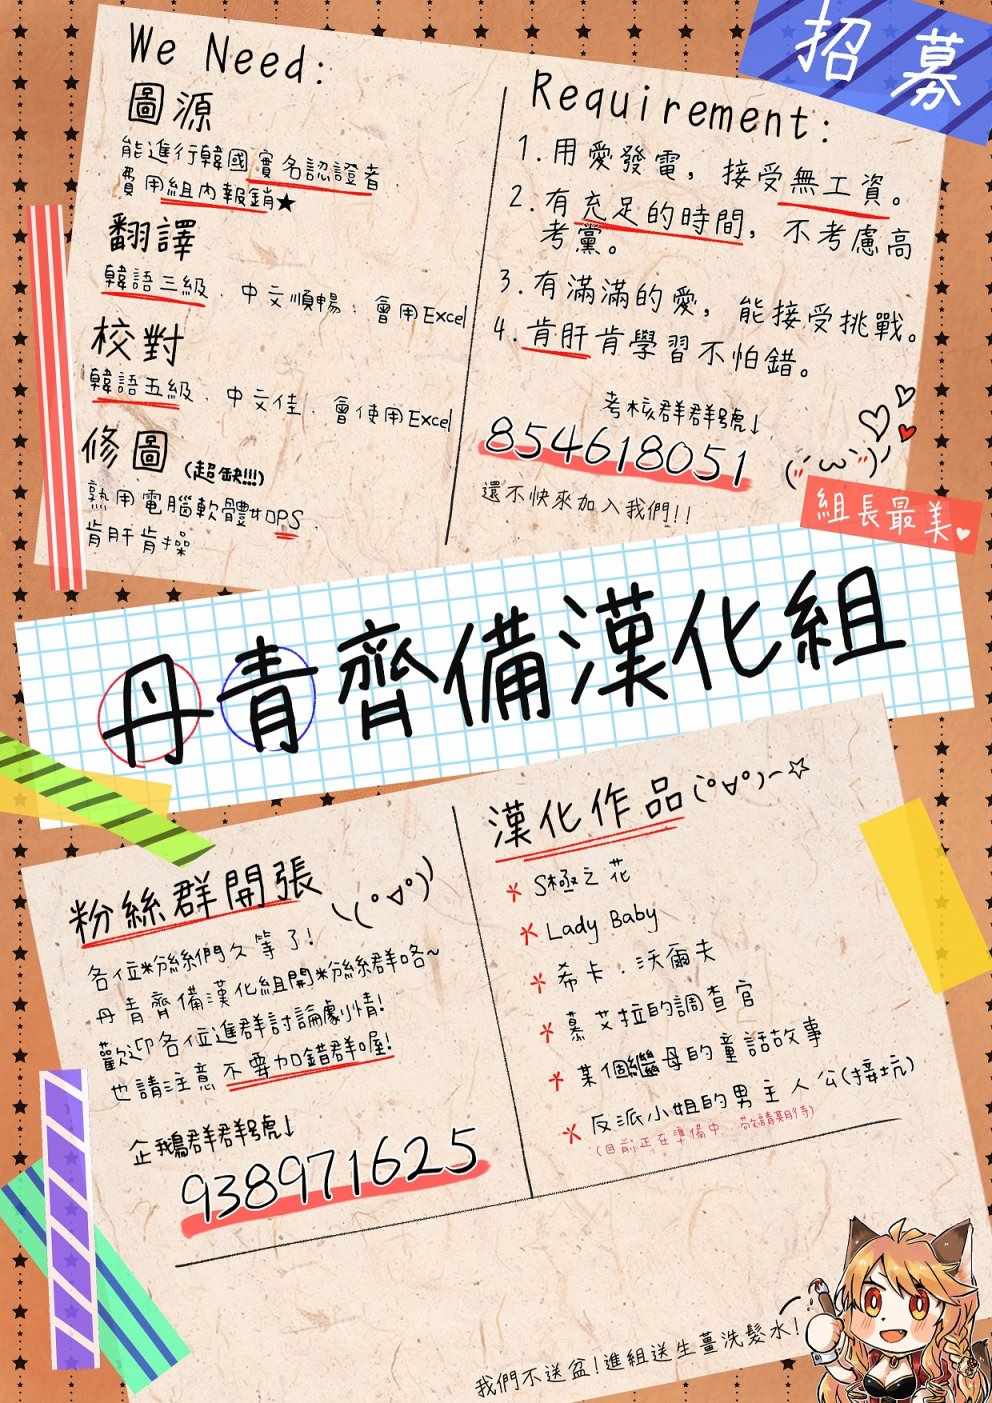 招募
We Need:
圖源
能進行韓國實名認證者.
費用組內報銷★
翻譯
韓語三級.中文順暢;會用Excel
校對
韓語五級.中文佳.會使用Excel
修圖(超缺!!!)
熟用電腦軟體如PS.
肯肝肯操
Requirement:
1.用愛發電,接受無工資。
2.有充足的時間,不考慮高
考黨。
3.有滿滿的愛,能接受挑戰。
4.肯肝肯學習不怕錯。
考核群群號↓
854618051
還不快來加入我們!!
組長最美♥
丹青齊備漢化組
粉絲群開張
各位粉絲們久等了!
丹青齊備漢化組開粉絲群咯~
歡迎各位進群討論劇情!
也請注意不要加錯群喔!
企鵝群群號↓
938971625
漢化作品(°∀°)~☆
* S極之花
* Lady Baby
* 希卡.沃爾夫
* 慕艾拉的調查官
* 某個繼母的童話故事
* 反派小姐的男主人公(接坑)
(目前正在準備中 敬請期待)
我們不送盆!進組送生薑洗髮水!